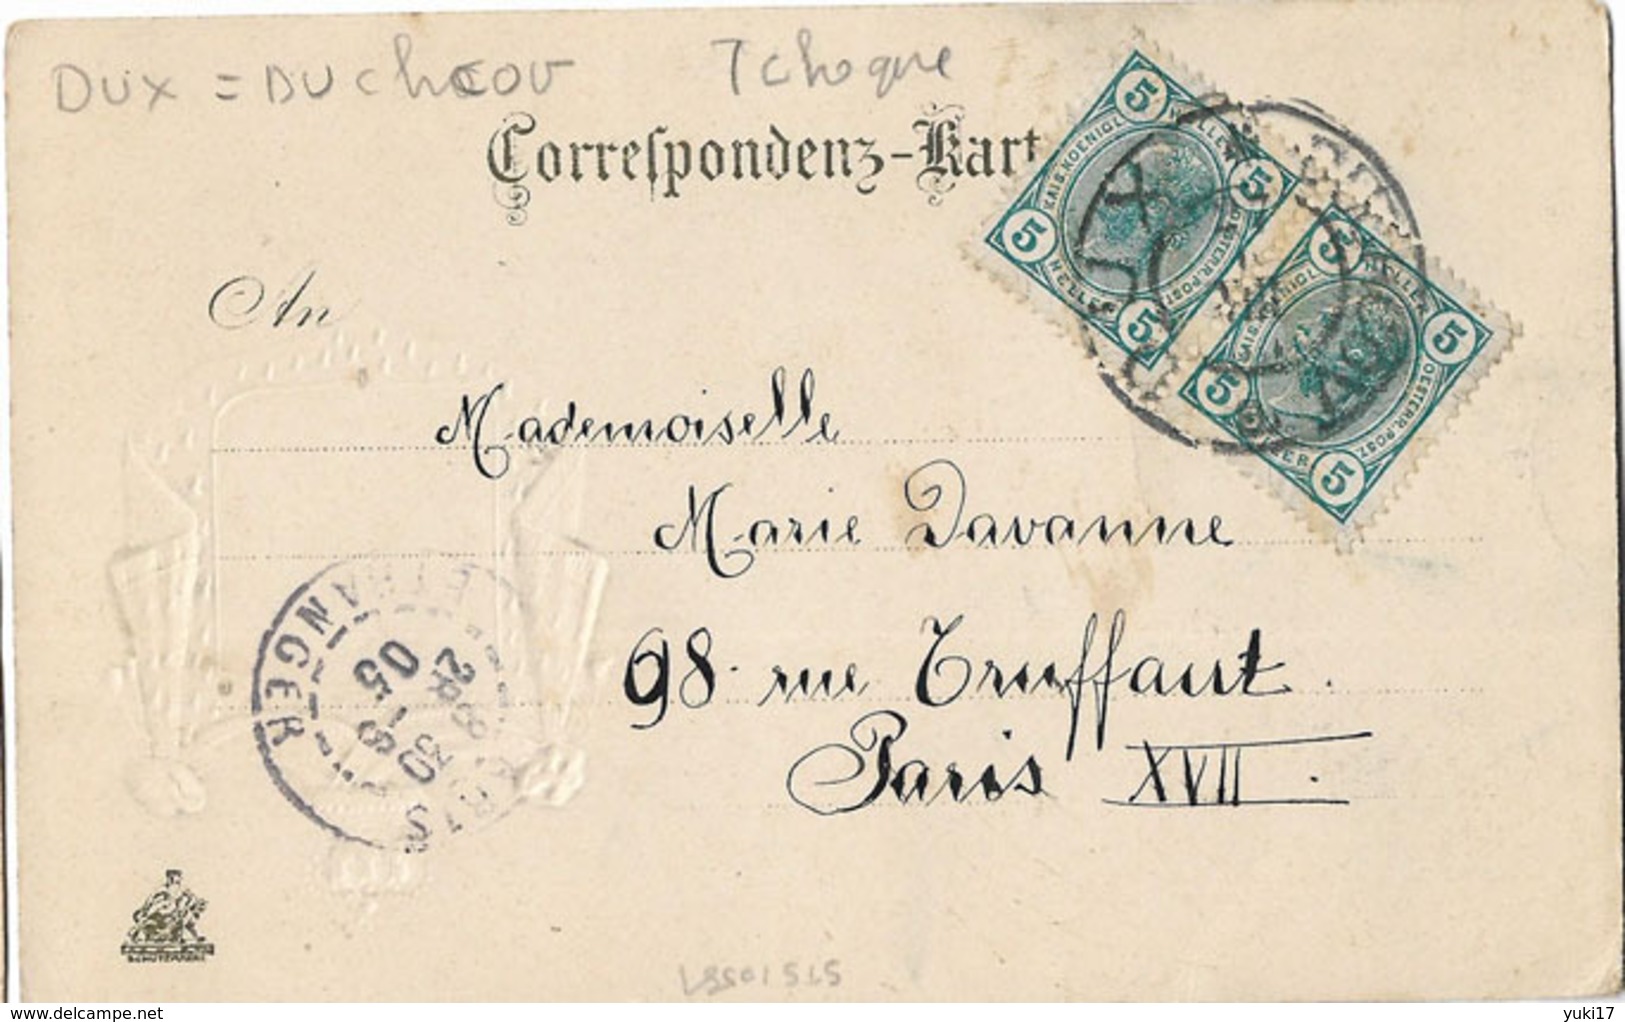 DUX = DUchcov Tchoque
Correspondenz-Kart
An
5 HELLER 5
KAIS. KOENIGL.
OESTERR. POST.
5 HELLER 5
5 HELLER 5
OESTERR. POST.
5 HELLER 5
Mademoiselle
Marie Davanne
98 rue Truffaut.
Paris XVII.
PARIS ETRANGER
2 8R
30
9-05
SCHUTZMARKE
delcampe.net
yuki17